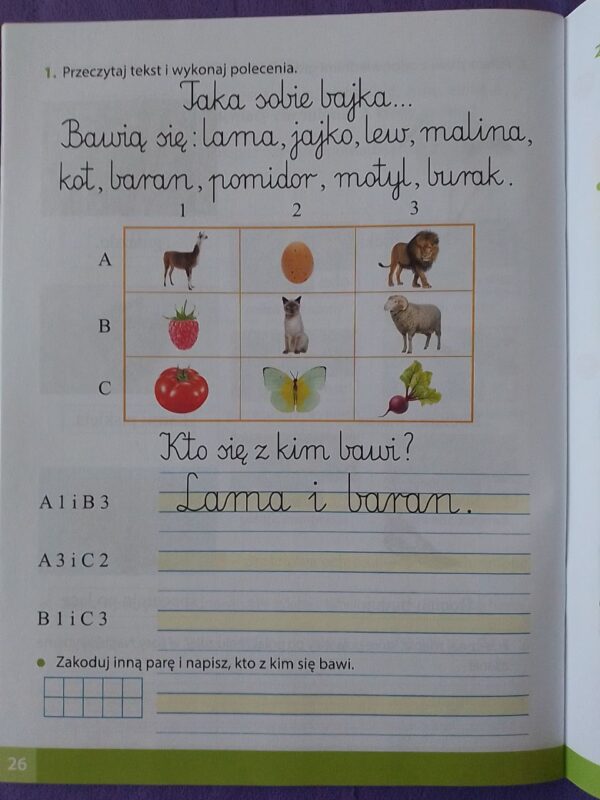 1. Przeczytaj tekst i wykonaj polecenia.
Taka sobie bajka...
Bawią się: lama, jajko, lew, malina,
kot, baran, pomidor, motyl, burak.
1 2 3
A
B
C
Kto się z kim bawi?
A 1 i B 3 Lama i baran.
A 3 i C 2
B 1 i C 3
• Zakoduj inną parę i napisz, kto z kim się bawi.
26